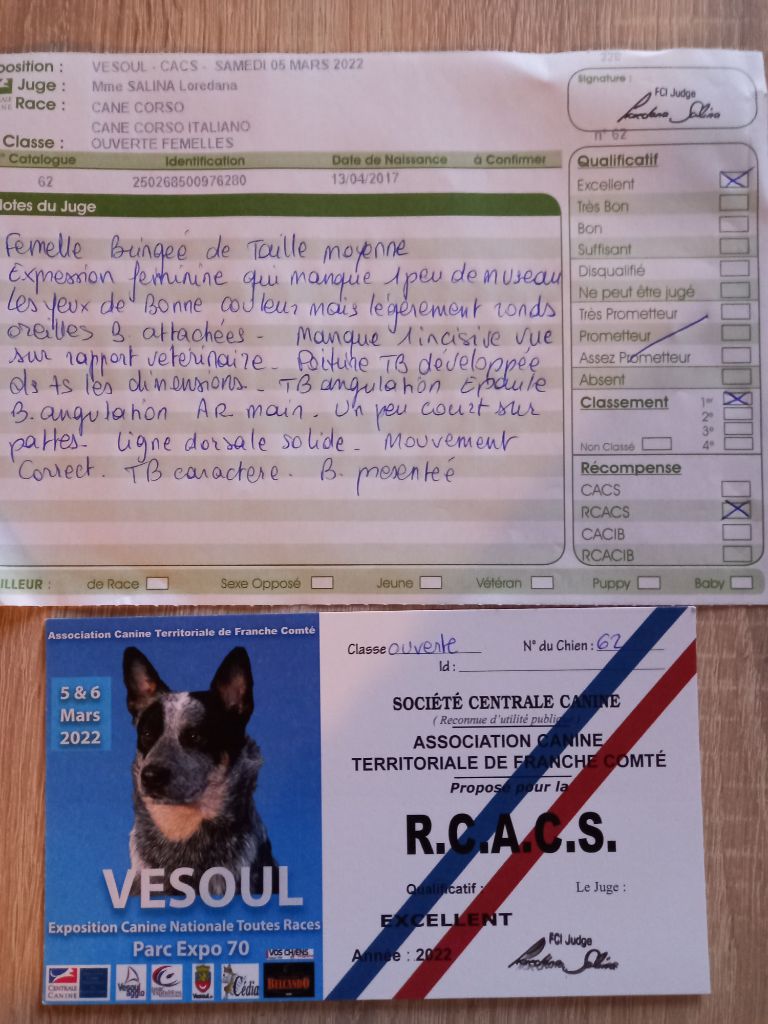 position : VESOUL - CACS - SAMEDI 05 MARS 2022
Juge : Mme SALINA Loredana
Race : CANE CORSO
CANE CORSO ITALIANO
Classe : OUVERTE FEMELLES
Signature :
FCI Judge
Loredana Salina
n° 62
° Catalogue Identification Date de Naissance à Confirmer
62 250268500976280 13/04/2017
Notes du Juge
Femelle Bringeé de Taille moyenne
Expression feminine qui manque 1 peu de museau
Les yeux de Bonne couleur mais légèrement ronds
oreilles B. attachées - Manque 1 incisive vue
sur rapport veterinaire - Poitrine TB développée
ds ts les dimensions - TB angulation Epaule
B. angulation AR main. Un peu court sur
pattes - ligne dorsale solide - Mouvement
Correct. TB caractere. B. presenteé
Qualificatif
Excellent
Très Bon
Bon
Suffisant
Disqualifié
Ne peut être jugé
Très Prometteur
Prometteur
Assez Prometteur
Absent
Classement 1er
2e
3e
Non Classé 4e
Récompense
CACS
RCACS
CACIB
RCACIB
ILLEUR : de Race Sexe Opposé Jeune Vétéran Puppy Baby
Association Canine Territoriale de Franche Comté
5 & 6
Mars
2022
VESOUL
Exposition Canine Nationale Toutes Races
Parc Expo 70
VOS CHIENS
CENTRALE
CANINE
Vesoul
agglo
Cédia
BELCANDO
Classe ouverte N° du Chien : 62
Id :
SOCIÉTÉ CENTRALE CANINE
( Reconnue d'utilité publique )
ASSOCIATION CANINE
TERRITORIALE DE FRANCHE COMTÉ
Proposé pour la
R.C.A.C.S.
Qualificatif : Le Juge :
EXCELLENT
Année : 2022
FCI Judge
Loredana Salina